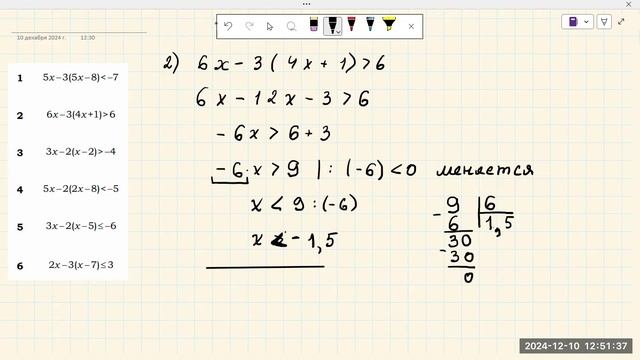 10 декабря 2024 г. 12:30
1 5x−3(5x−8)<−7
2 6x−3(4x+1)>6
3 3x−2(x−2)>−4
4 5x−2(2x−8)<−5
5 3x−2(x−5)≤−6
6 2x−3(x−7)≤3
2) 6x − 3(4x + 1) > 6
6x − 12x − 3 > 6
− 6x > 6 + 3
− 6·x > 9 | : (−6) < 0 меняется
x < 9 : (−6)
x < − 1,5
− 9 | 6
6 | 1,5
− 30
30
0
2024-12-10 12:51:37